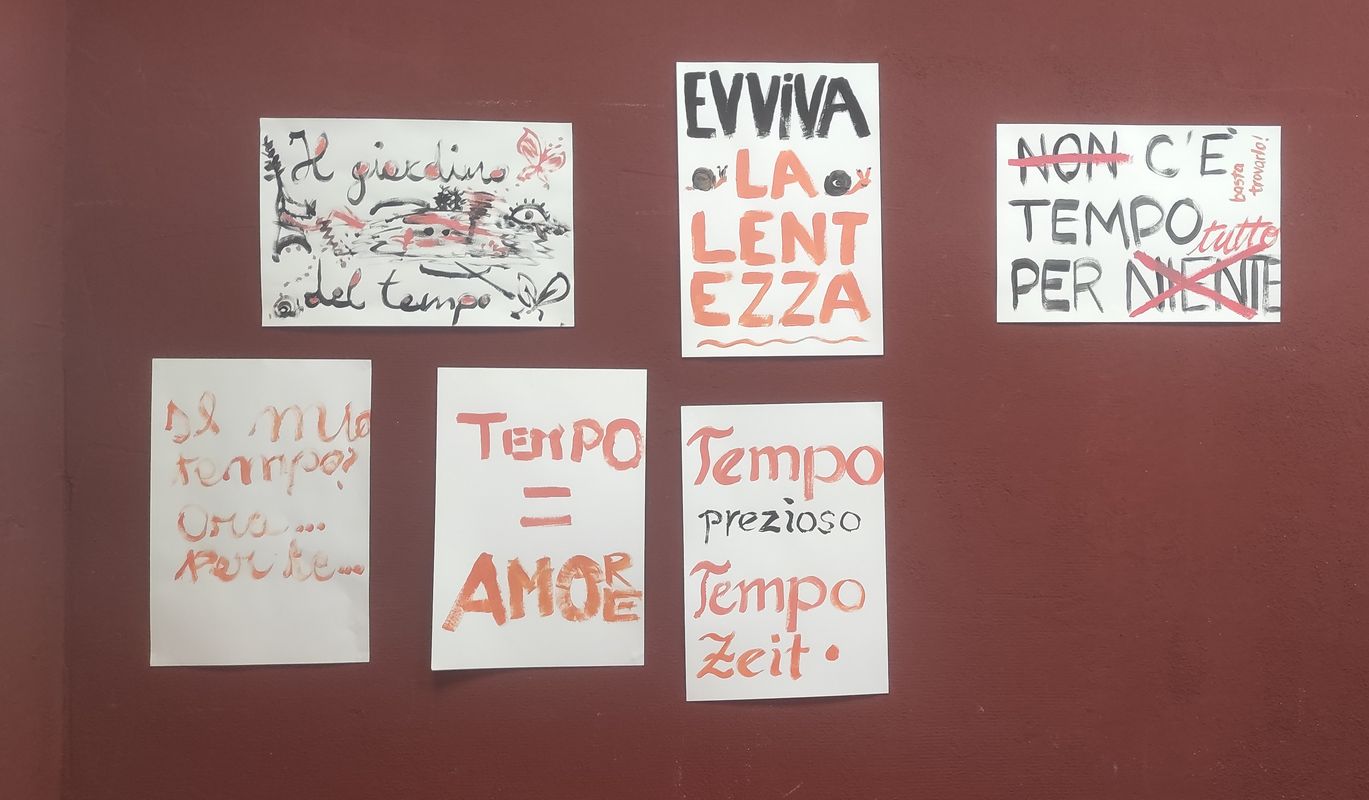 Il giardino
del tempo
EVVIVA
LA
LENT
EZZA
NON C'È
TEMPO
PER NIENTE
tutto
basta
trovarlo!
Il mio
tempo?
Ora...
per te...
TEMPO
=
AMORE
Tempo
prezioso
Tempo
Zeit.